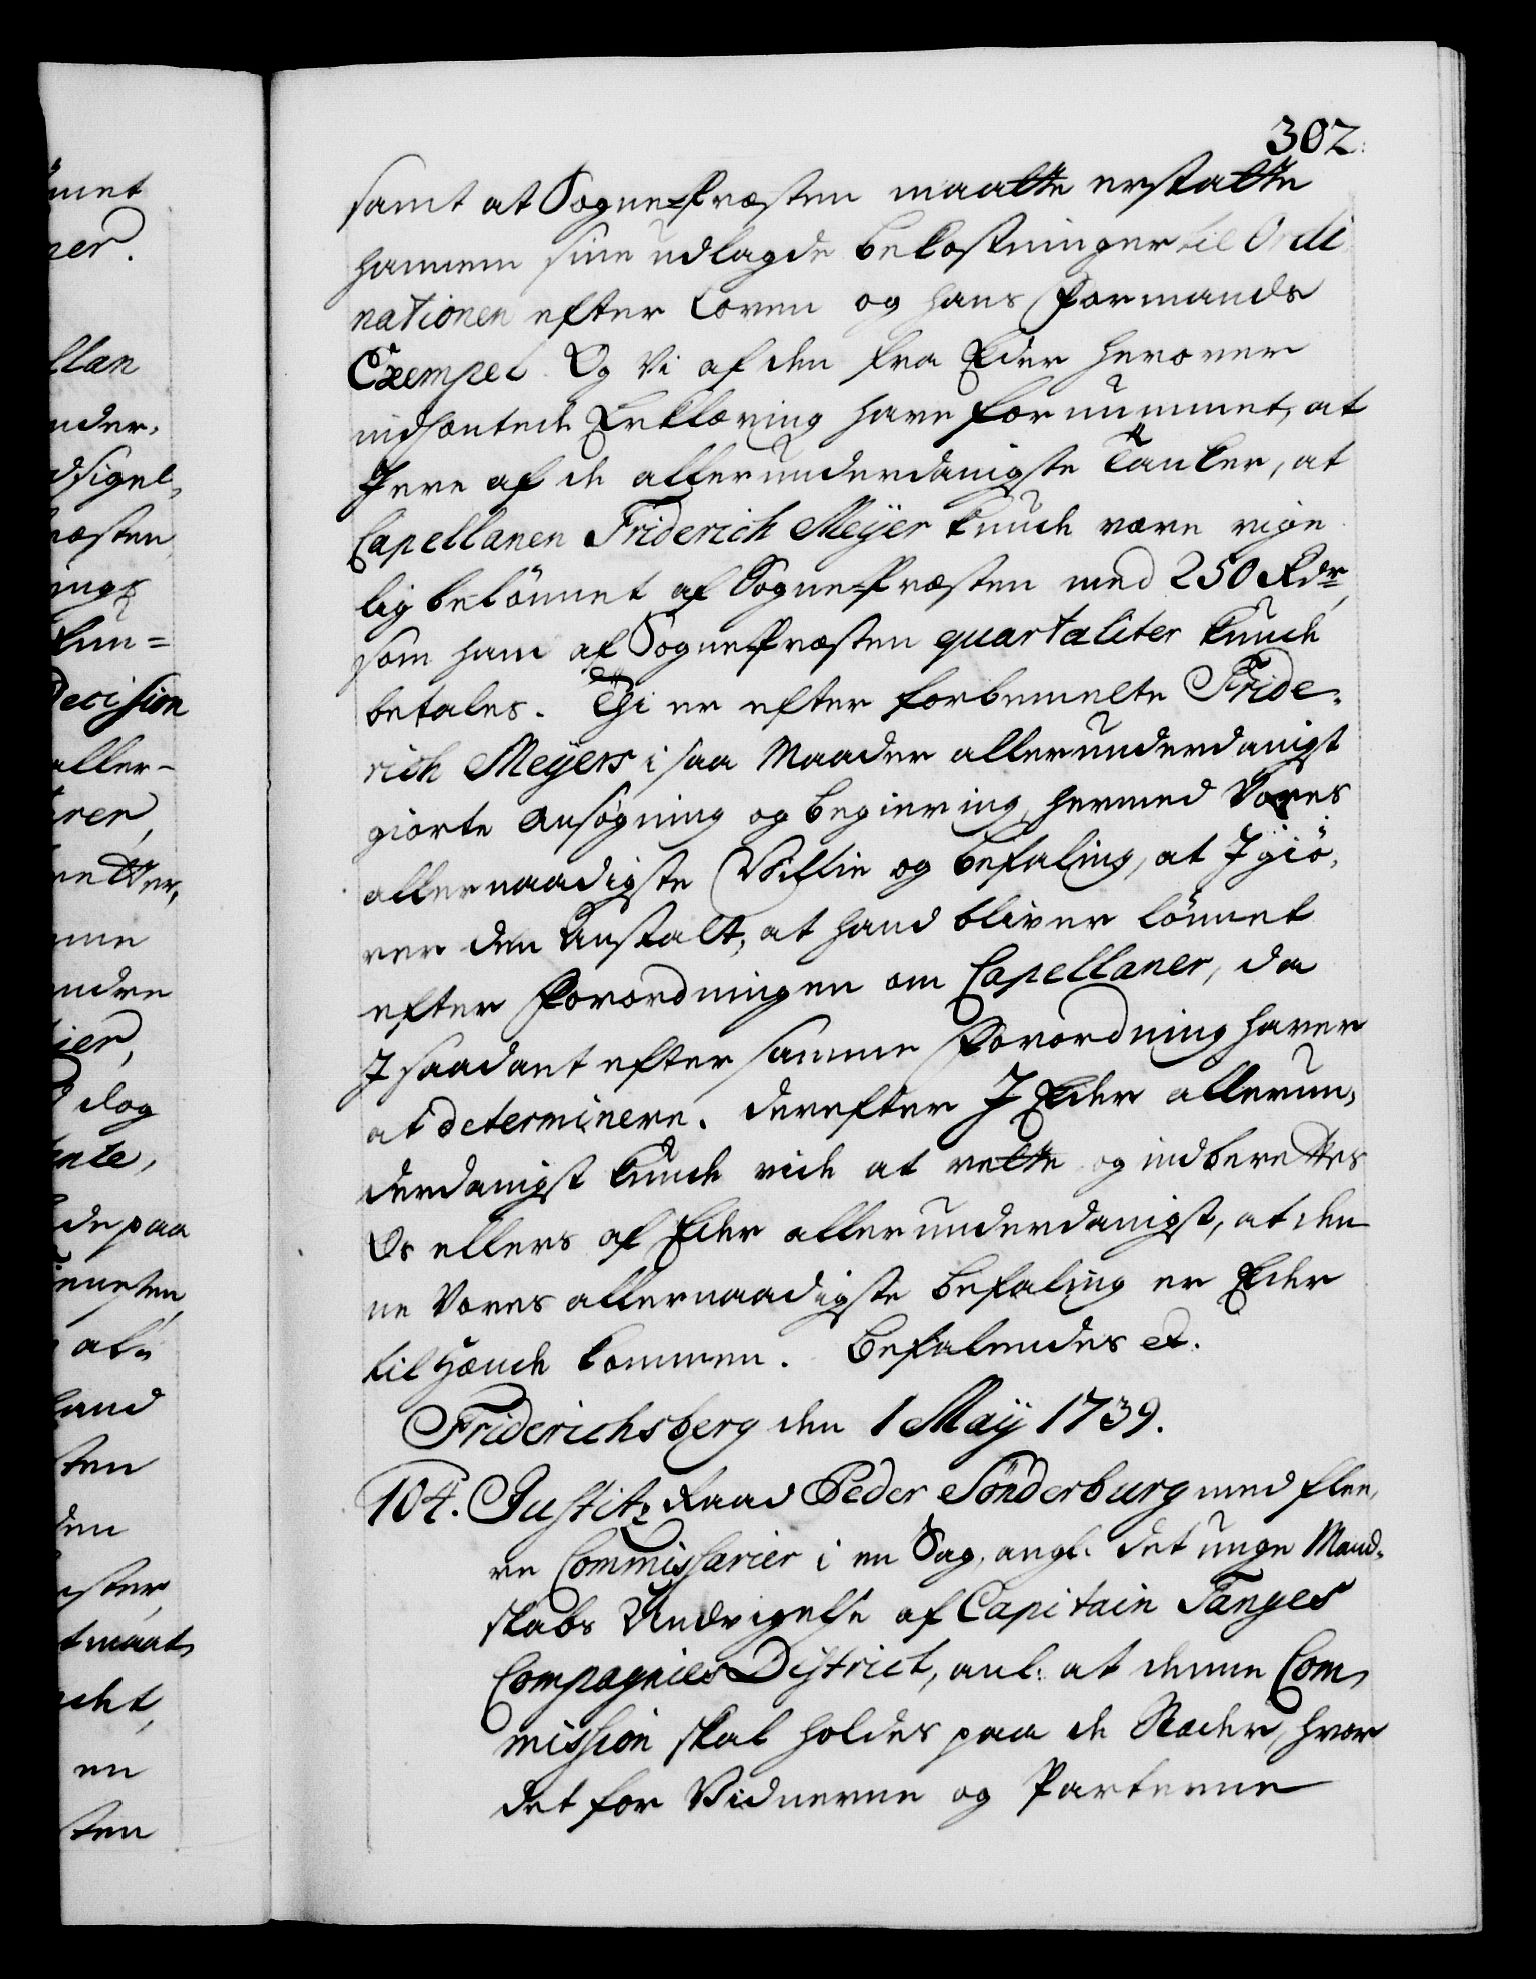 302.
samt at Sogne-Præsten maatte erstatte
hannem sine udlagde bekostninger til Ordi
nationen efter Loven og hans Formands
Exempel. Og Vi af den fra Eder herover
indsendte Erklæring have fornummet, at
I ere af de allerunderdanigste Tanker, at
Capellanen Friderich Meÿer kunde være rige
lig belönnet af Sogne-Præsten med 250 Rdr.
som ham af Sogne-Præsten quartaliter kunde
betales. Thi er efter forbemelte Fride-
rich Meÿers i saa Maader allerunderdanigst
giorte Ansøgning og begiering, hermed Vores
allernaadigste Villie og befaling, at I giö-
rer den Anstalt, at hand bliver lönnet
efter Forordningen om Capellaner, da
I saadant efter samme Forordning haver
at determinere. Derefter I Eder allerun-
derdanigst kunde vide at rette og indberettes
Os ellers af Eder allerunderdanigst, at den
ne Vores allernaadigste befaling er Eder
til Hænde kommen. Befalendes et.
Friderichsberg den 1 Maÿ 1739.
104. Justitz Raad Peder Sönderburg med flee,
re Commissarier i en Sag, angl: det unge Mand-
skabs Undvigelse af Capitain Tanges
Compagnies District, anl: at denne Com,
mission skal holdes paa de Stæder, hvor
det for Vidnerne og Parterne
met
ner.
llan
nder,
dsigel,
ræsten
ings
kun=
Decision
aller-
ren,
retter,
nne
endre
ier,
dog
nte,
de paa
at
hand
sten
den
en
sten